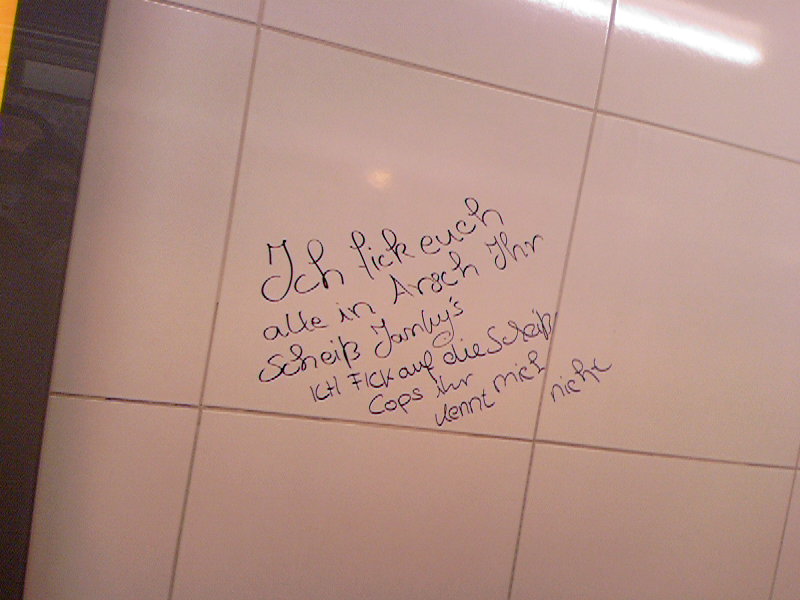 Ich fick euch
alle in Arsch Ihr
Scheiß Janky's
ICH FICK auf die Scheiß
Cops ihr
kennt mich nicht